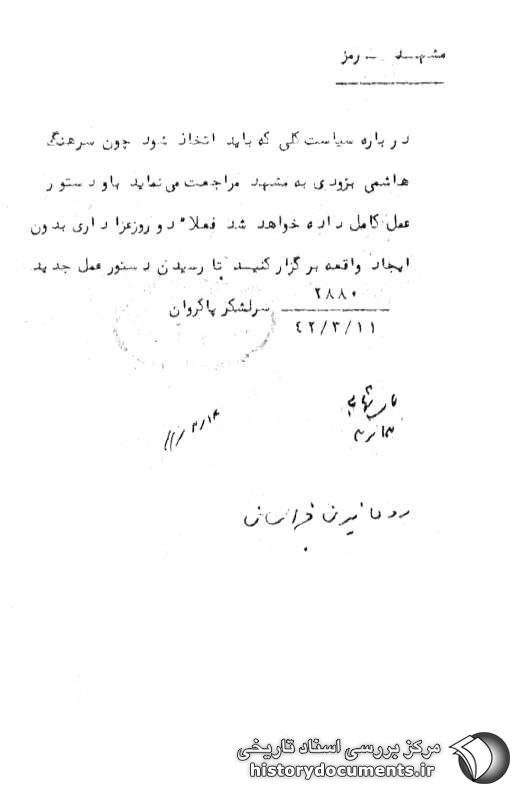 مشهد - رمز
درباره سیاست کلی که باید اتخاذ شود چون سرهنگ
هاشمی بزودی به مشهد مراجعت می نماید باو دستور
عمل کامل داده خواهد شد فعلا" دو روز عزاداری بدون
ایجاد واقعه برگزار کنید تا رسیدن دستور عمل جدید
۲۸۸۰
سرلشکر پاکروان
۴۲/۳/۱۱
روحانیون خراسان
مرکز بررسی اسناد تاریخی
historydocuments.ir